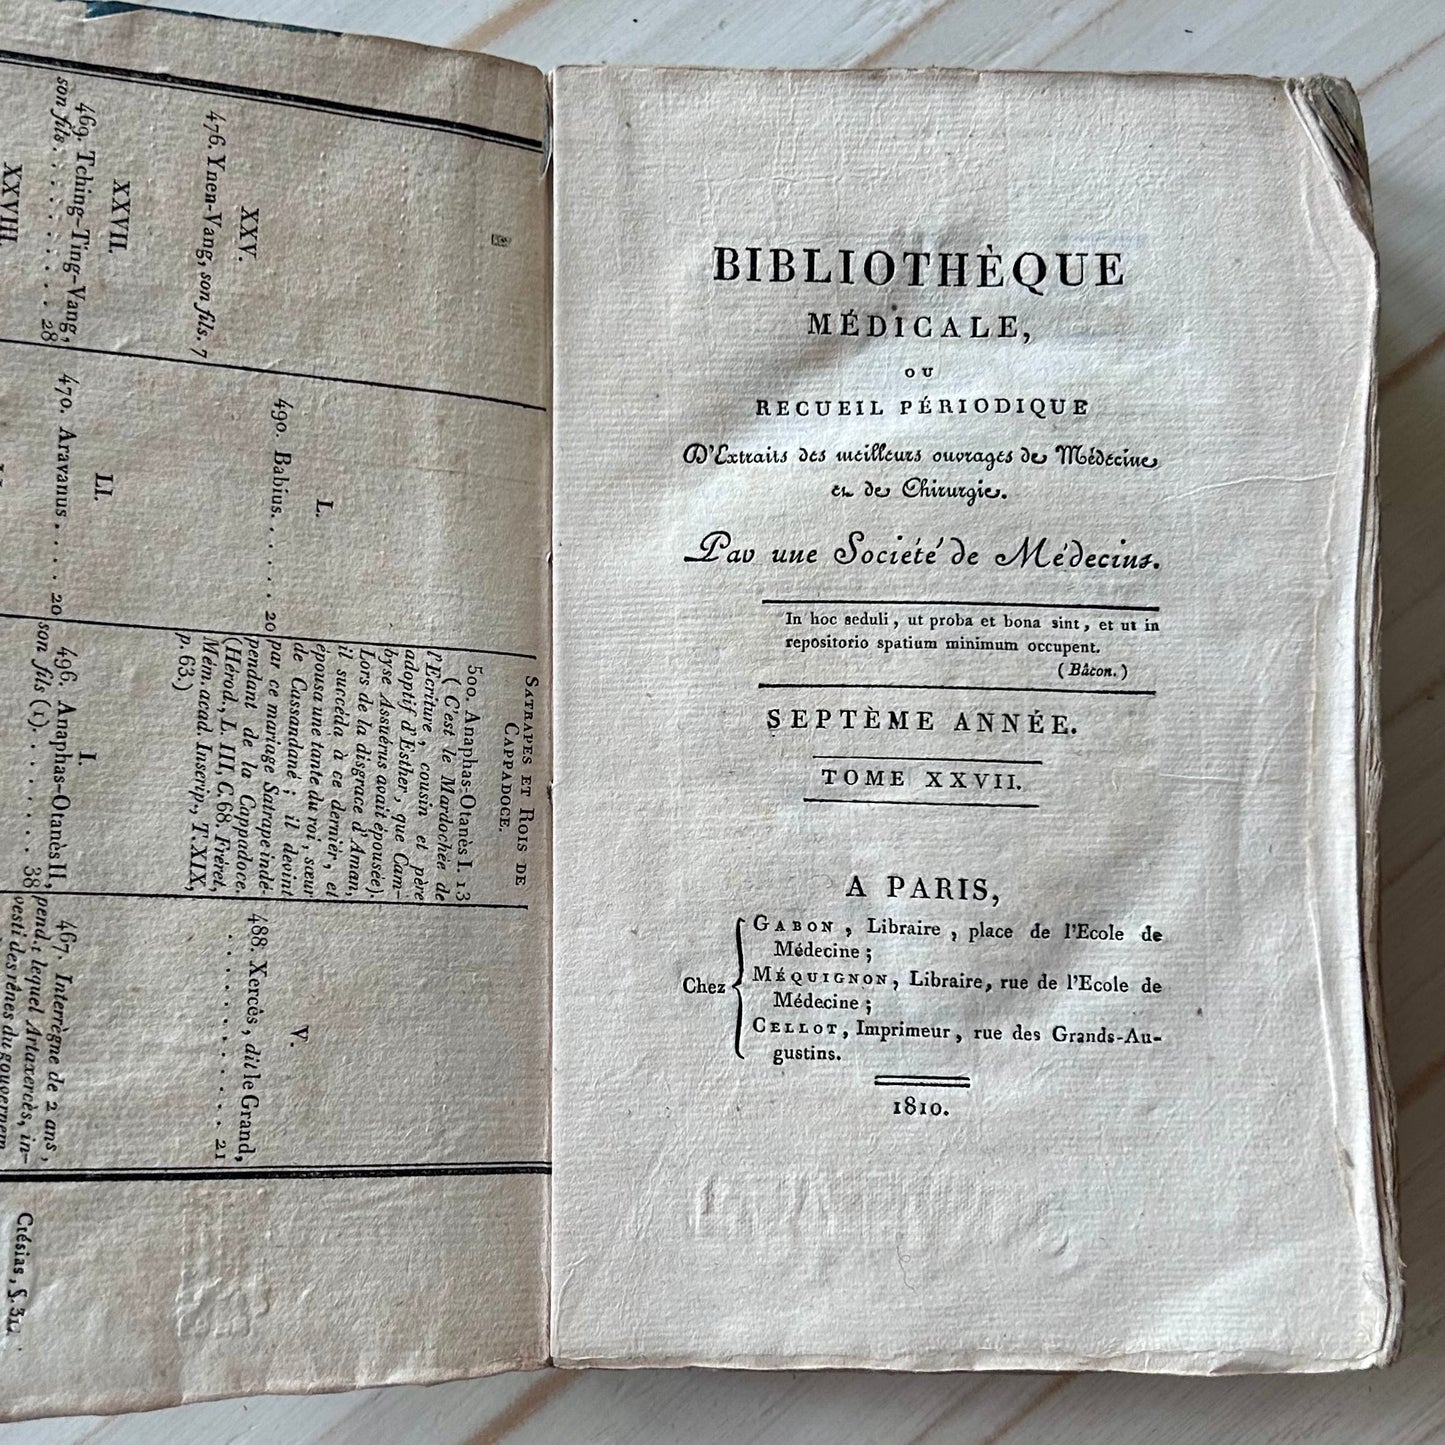 XXV.
476. Ynen-Vang, son fils. 7
XXVII.
469. Tching-Ting-Vang,
son fils. . . . . . . . . 28
XXVIII.
L.
490. Babius. . . . . . 20
LI.
470. Aravanus . . . . . 20
SATRAPES ET ROIS DE
CAPPADOCE.
500. Anaphas-Otanès I. 13
( C'est le Mardochée de
l'Ecriture, cousin et père
adoptif d'Esther, que Cam-
byse Assuérus avait épousée).
Lors de la disgrace d'Aman,
il succéda à ce dernier, et
épousa une tante du roi, sœur
de Cassandane ; il devint
par ce mariage Satrape indé-
pendant de la Cappadoce.
(Hérod., L. III, C. 68. Fréret,
Mém. acad. Inscrip., T. XIX,
p. 63.)
I.
496. Anaphas-Otanès II,
son fils (1). . . . . . . . 38
V.
488. Xercès, dit le Grand,
. . . . . . . . . . 21
467. Interrègne de 2 ans,
pend.t lequel Artaxercès, in-
vesti des rênes du gouvernem
Ctésias, §. 31,
BIBLIOTHÈQUE
MÉDICALE,
OU
RECUEIL PÉRIODIQUE
D'Extraits des meilleurs ouvrages de Médecine
et de Chirurgie.
Par une Société de Médecins.
In hoc seduli, ut proba et bona sint, et ut in
repositorio spatium minimum occupent.
(Bâcon.)
SEPTÈME ANNÉE.
TOME XXVII.
A PARIS,
Chez
GABON, Libraire, place de l'Ecole de
Médecine ;
MÉQUIGNON, Libraire, rue de l'Ecole de
Médecine ;
CELLOT, Imprimeur, rue des Grands-Au-
gustins.
1810.